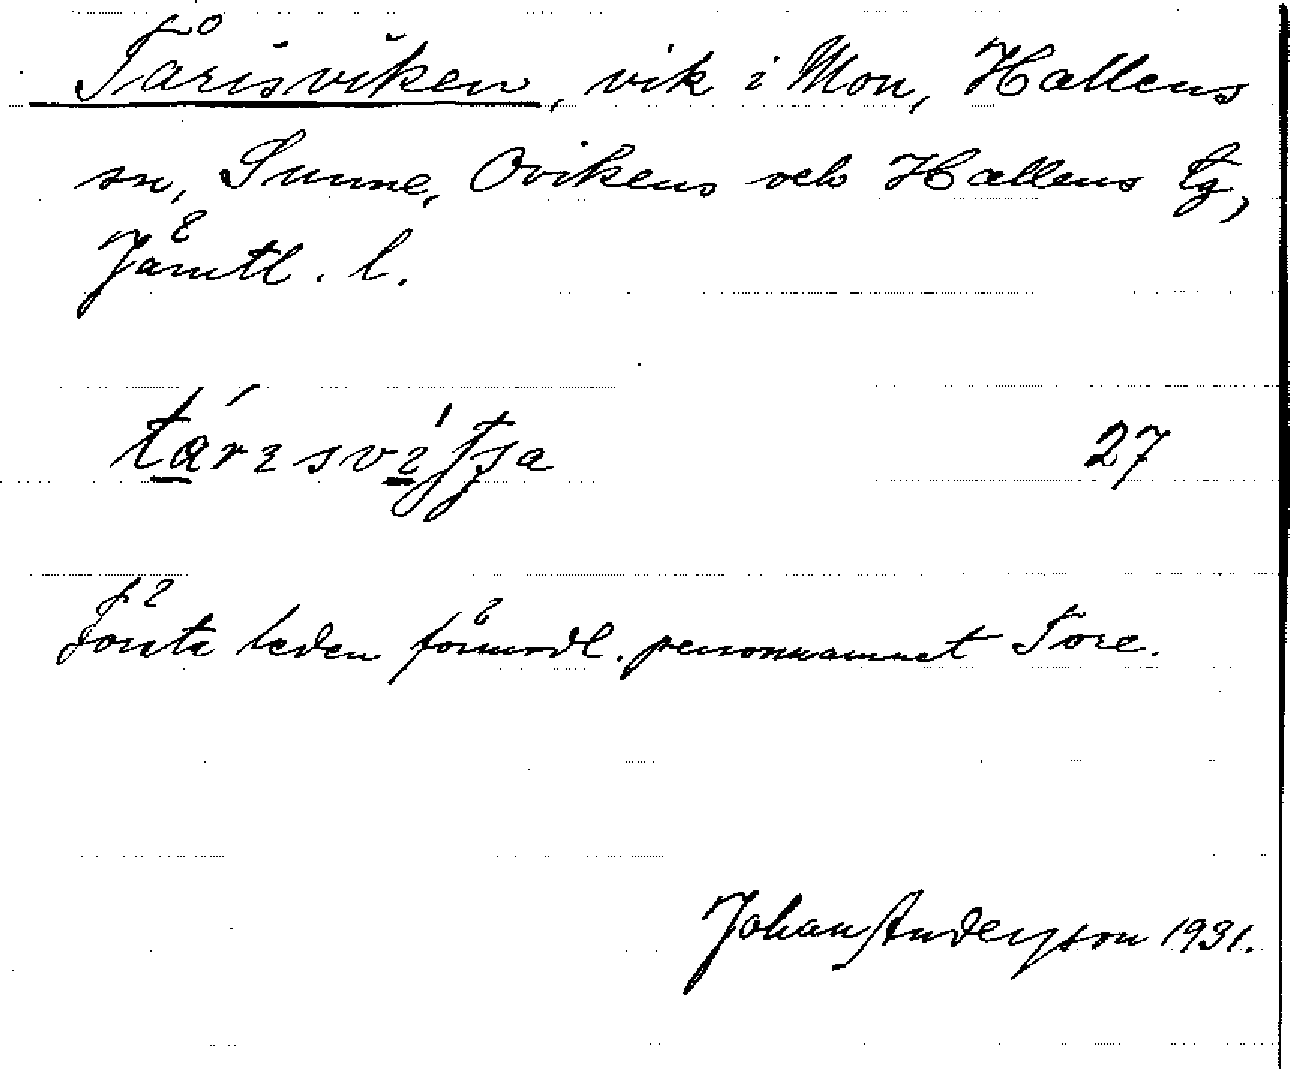 Tårisviken, vik i Mon, Hallens
sn, Sunne, Ovikens och Hallens tg,
Jämtl. l.
27
Första leden förmodl. personnamnet Tore.
Johan Anderzson 1931.